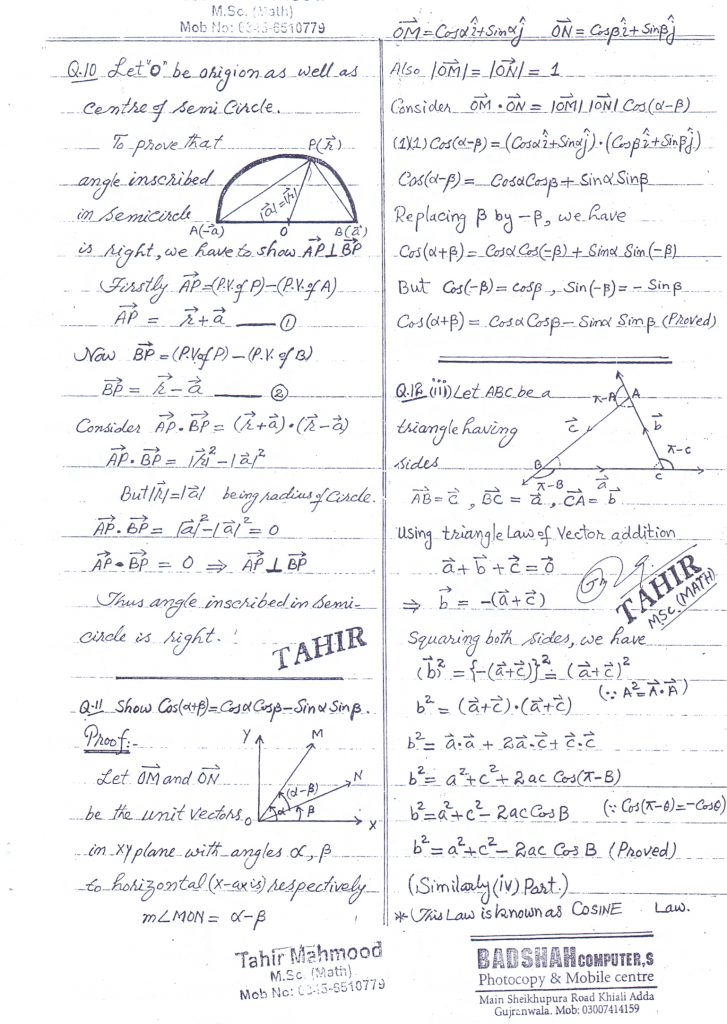 M.Sc. (Math)
Mob No: 0345-6510779
Q.10 Let "O" be origion as well as
centre of semi Circle.
To prove that
angle inscribed
in semicircle
P(r⃗)
|a⃗|=|r⃗|
A(-a⃗) O B(a⃗)
is right, we have to show A⃗P⊥B⃗P
Firstly A⃗P=(P.V. of P)-(P.V. of A)
A⃗P = r⃗+a⃗ —— ①
Now B⃗P=(P.V of P)-(P.V. of B)
B⃗P = r⃗-a⃗ —— ②
Consider A⃗P·B⃗P = (r⃗+a⃗)·(r⃗-a⃗)
A⃗P·B⃗P = |r⃗|²-|a⃗|²
But |r⃗|=|a⃗| being radius of Circle.
A⃗P·B⃗P = |a⃗|²-|a⃗|²=0
A⃗P·B⃗P = 0 ⇒ A⃗P⊥B⃗P
Thus angle inscribed in semi-
circle is right.
TAHIR
Q.11 Show Cos(α+β)=CosαCosβ-SinαSinβ.
Proof:-
Let O⃗M and O⃗N
be the unit vectors
Y M N (α-β) α β O X
in XY plane with angles α, β
to horizontal (X-axis) respectively
m∠MON = α-β
O⃗M=Cosαî+Sinαĵ O⃗N=Cosβî+Sinβĵ
Also |O⃗M|=|O⃗N|=1
Consider O⃗M·O⃗N=|O⃗M||O⃗N|Cos(α-β)
(1)(1)Cos(α-β)=(Cosαî+Sinαĵ)·(Cosβî+Sinβĵ)
Cos(α-β)= CosαCosβ+SinαSinβ
Replacing β by -β, we have
Cos(α+β)=CosαCos(-β)+Sinα Sin(-β)
But Cos(-β)=cosβ, Sin(-β)=-Sinβ
Cos(α+β)=CosαCosβ-Sinα Sinβ (Proved)
Q.12 (iii) Let ABC be a
triangle having
sides
π-A A c⃗ b⃗ π-C B C π-B a⃗
A⃗B=c⃗, B⃗C=a⃗, C⃗A=b⃗
Using triangle Law of Vector addition
a⃗+b⃗+c⃗=0⃗
⇒ b⃗ = -(a⃗+c⃗)
TAHIR
MSC.(MATH)
Squaring both sides, we have
(b⃗)²={-(a⃗+c⃗)}²=(a⃗+c⃗)²
b²=(a⃗+c⃗)·(a⃗+c⃗) (∵ A²=A⃗·A⃗)
b²= a⃗·a⃗+2a⃗·c⃗+c⃗·c⃗
b²= a²+c²+2ac Cos(π-B)
b²=a²+c²-2acCosB (∵ Cos(π-θ)=-Cosθ)
b²= a²+c²-2ac Cos B (Proved)
(Similarly (iv) Part.)
* This Law is known as COSINE Law.
Tahir Mahmood
M.Sc. (Math)
Mob No: 0345-6510779
BADSHAH COMPUTER,S
Photocopy & Mobile centre
Main Sheikhupura Road Khiali Adda
Gujranwala. Mob: 03007414159